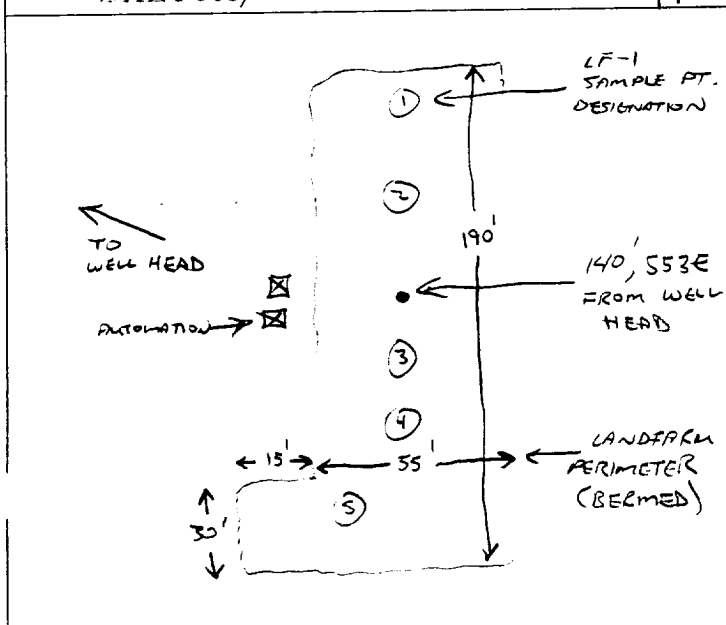 LF-1
SAMPLE PT.
DESIGNATION
1
2
190'
TO
WELL HEAD
140', S53E
FROM WELL
HEAD
AUTOMATION
3
4
15'
55'
LANDFARM
PERIMETER
(BERMED)
30'
5